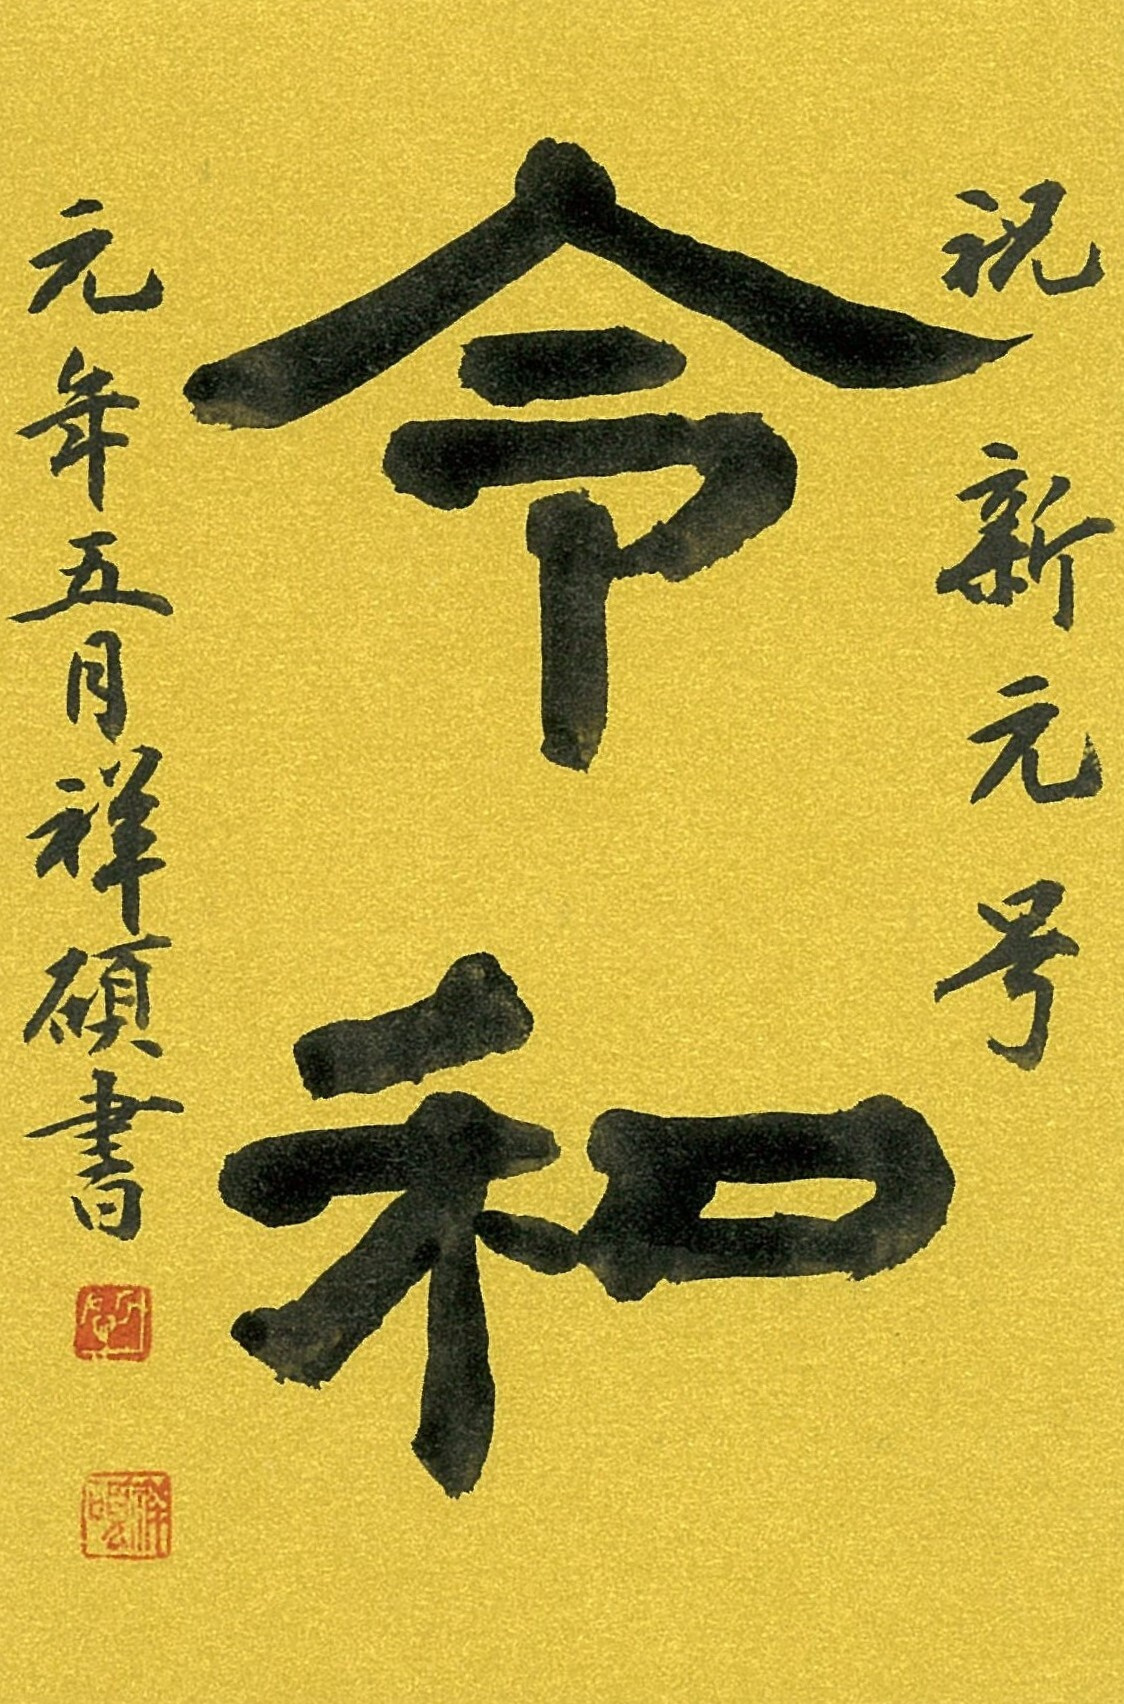 祝新元号
令和
元年五月祥碩書